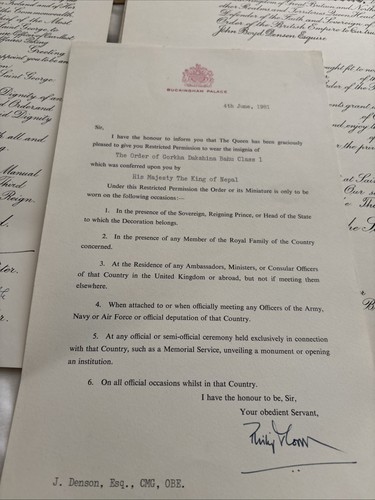 Greeting
appoint you to be an
Saint George
Dignity of an
all and
Manual
Third
Reign.
Order of the British Empire to our tru
John Boyd Denson Esquire
BUCKINGHAM PALACE
4th June, 1981
Sir,
I have the honour to inform you that The Queen has been graciously
pleased to give you Restricted Permission to wear the insignia of
The Order of Gorkha Dakshina Bahu Class 1
which was conferred upon you by
His Majesty The King of Nepal
Under this Restricted Permission the Order or its Miniature is only to be
worn on the following occasions:—
1. In the presence of the Sovereign, Reigning Prince, or Head of the State
to which the Decoration belongs.
2. In the presence of any Member of the Royal Family of the Country
concerned.
3. At the Residence of any Ambassadors, Ministers, or Consular Officers
of that Country in the United Kingdom or abroad, but not if meeting them
elsewhere.
4. When attached to or when officially meeting any Officers of the Army,
Navy or Air Force or official deputation of that Country.
5. At any official or semi-official ceremony held exclusively in connection
with that Country, such as a Memorial Service, unveiling a monument or opening
an institution.
6. On all official occasions whilst in that Country.
I have the honour to be, Sir,
Your obedient Servant,
J. Denson, Esq., CMG, OBE.